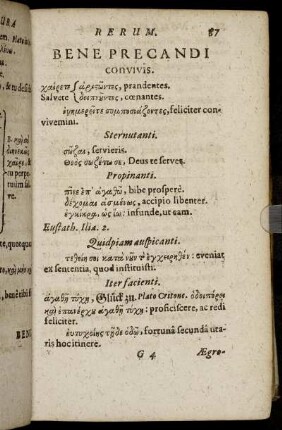 RERUM. 87
BENE PRECANDI
convivis.
χαίρετε ἀριστῶντες, prandentes.
Salvete δειπνῶντες, cœnantes.
εὐημερεῖτε συμποσιάζοντες, feliciter con-
vivemini.
Sternutanti.
σώζου, servieris.
Θεὸς σωζέτω σε, Deus te servet.
Propinanti.
πῖνε ἐπ' ἀγαθῷ, bibe prosperè.
δέχομαι ἀσμένως, accipio libenter.
ἐγκίκρα, ὡς ἴω: infunde, ut eam.
Eustath. Ilia. 2.
Quidpiam auspicanti.
κατὰ νῶν eveniat
ex sententia, quod instituisti.
Iter facienti.
ἀγαθῇ τύχῃ, Glück zu. Plato Critone. ὁδοιπόρει
καὶ ἐπανέρχου ἀγαθῇ τύχῃ: proficiscere, ac redi
feliciter.
εὐτυχοίης τῇδε ὁδῷ, fortunâ secundâ uta-
ris hoc itinere.
G 4 Ægro-